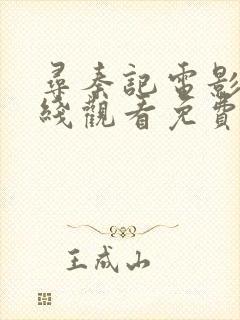 尋秦記電影
綫觀看免費
王成山